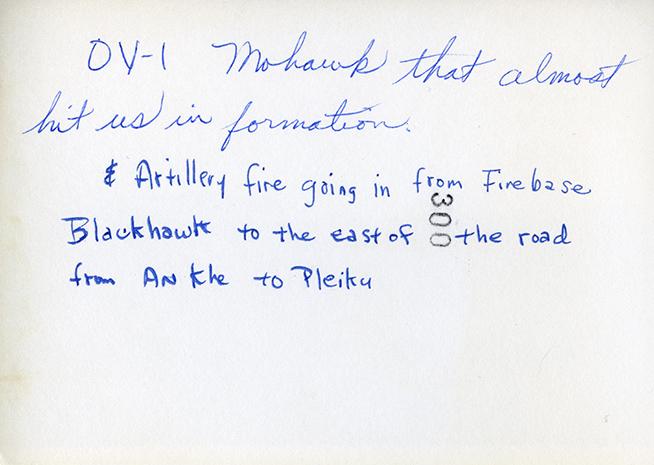 OV-1 Mohawk that almost
hit us in formation.
& Artillery fire going in from Firebase
Blackhawk to the east of the road
from AN Khe to Pleiku
300